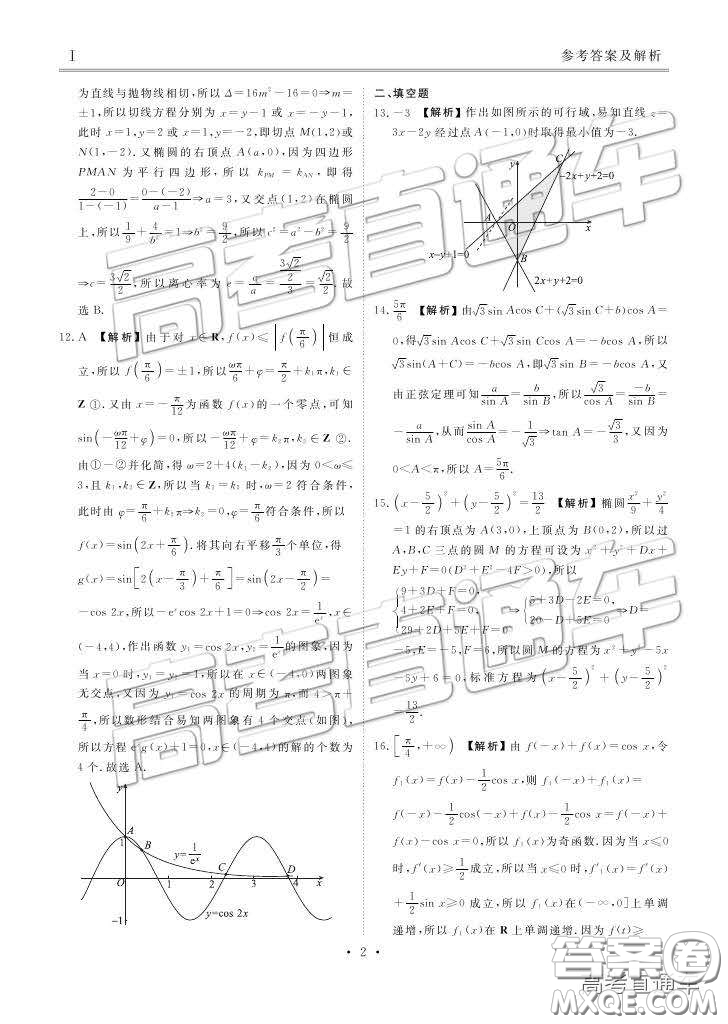 I
参考答案及解析
为直线与抛物线相切,所以 Δ=16m²-16=0⇒m=
±1,所以切线方程分别为 x=y-1 或 x=-y-1,
此时 x=1,y=2 或 x=1,y=-2,即切点 M(1,2)或
N(1,-2).又椭圆的右顶点 A(a,0),因为四边形
PMAN 为平行四边形,所以 k_PM = k_AN,即得
(2-0)/(1-(-1)) = (0-(-2))/(a-1) ⇒a=3,又交点(1,2)在椭圆
上,所以 1/9+4/b²=1⇒b²=9/2,所以 c²=a²-b²=9/2
⇒c=3√2/2,所以离心率为 e=
选 B.
12. A 【解析】由于对 x∈R,f(x)≤|f(π/6)|恒成
立,所以 f(π/6)=±1,所以 ωπ/6+φ=π/2+k₁π,k₁∈
Z ①.又由 x=-π/12 为函数 f(x)的一个零点,可知
sin(-ωπ/12+φ)=0,所以-ωπ/12+φ=k₂π,k₂∈Z ②.
由①-②并化简,得 ω=2+4(k₁-k₂),因为 0<ω≤
3,且 k₁,k₂∈Z,所以当 k₁=k₂ 时,ω=2 符合条件,
此时由 φ=π/6+k₂π⇒k₂=0,φ=π/6 符合条件,所以
f(x)=sin(2x+π/6).将其向右平移 π/3 个单位,得
g(x)=sin[2(x-π/3)+π/6]=sin(2x-π/2)=
-cos 2x,所以-eˣcos 2x+1=0⇒cos 2x=1/eˣ,x∈
(-4,4),作出函数 y₁=cos 2x,y₂=1/eˣ 的图象,因为
当 x=0 时,y₁=y₂=1,所以在 x∈(-4,4)两图象
无交点,又因为 y₁=cos 2x 的周期为 π,而 4>π+
π/4,所以数形结合易知两图象有 4 个交点(如图),
所以方程 eˣg(x)+1=0,x∈(-4,4)的解的个数为
4 个.故选 A.
y
A
1
B
y=1/eˣ
C
D
O 1 2 3 4 x
-1
y=cos 2x
二、填空题
13. -3 【解析】作出如图所示的可行域,易知直线 z=
3x-2y 经过点 A(-1,0)时取得最小值为-3.
y
C
-2x+y+2=0
A
O
x
x-y+1=0
B
2x+y+2=0
14. 5π/6 【解析】由√3sin Acos C+(√3sin C+b)cos A=
0,得√3sin Acos C+√3sin Ccos A=-bcos A,所以
√3sin(A+C)=-bcos A,即√3sin B=-bcos A,又
由正弦定理可知 a/sin A=b/sin B,所以 √3/cos A=-b/sin B=
-a/sin A,从而 sin A/cos A=-1/√3⇒tan A=-√3/3,又因为
0<A<π,所以 A=5π/6.
15. (x-5/2)²+(y-5/2)²=13/2 【解析】椭圆 x²/9+y²/4
=1 的右顶点为 A(3,0),上顶点为 B(0,2),所以过
A,B,C 三点的圆 M 的方程可设为 x²+y²+Dx+
Ey+F=0(D²+E²-4F>0),所以
{9+3D+F=0,
4+2E+F=0,
29+2D+5E+F=0
⇒{5+3D-2E=0,
20-D+5E=0
⇒D=
-5,E=-5,F=6,所以圆 M 的方程为 x²+y²-5x
-5y+6=0,标准方程为(x-5/2)²+(y-5/2)²
=13/2.
16. [π/4,+∞) 【解析】由 f(-x)+f(x)=cos x,令
f₁(x)=f(x)-1/2cos x,则 f₁(-x)+f₁(x)=
f(-x)-1/2cos(-x)+f(x)-1/2cos x=f(-x)+
f(x)-cos x=0,所以 f₁(x)为奇函数.因为当 x≤0
时,f′(x)≥1/2成立,所以当 x≤0 时,f′₁(x)=f′(x)
+1/2sin x≥0 成立,所以 f₁(x)在(-∞,0]上单调
递增,所以 f₁(x)在 R 上单调递增.因为 f(t)≥
· 2 ·
高考直通车
高考直通车
答案圈
高考直通车
MXQE.COM